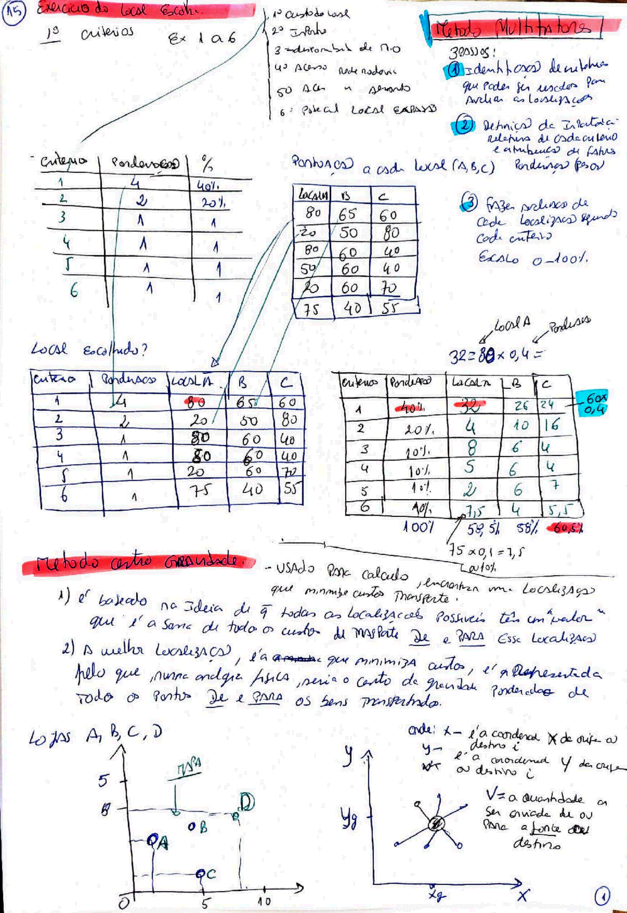 15
Exercicio do Local Escolh.
1º criterios Ex 1 a 6
1º custo do Local
2º Imposto
3 mão
4º Acesso
50
6: Potecial LOCAL EXPASSO
Metodo Multifatores
3 PASSOS:
① Identificasos de criterios
que poder ser usados Para
Avaliar as Localizacoes
② Definição da Importancia
relativa de cada criterio
e atributos de
Ponderaços Peso
③ Fazer
Cada Localizacao segundo
cada criterio
Escala 0-100%
criterio Ponderaços %
1 4 40%
2 2 20%
3 1 1
4 1 1
5 1 1
6 1 1
Pontuaços a cada Local (A,B,C)
LOCAL A B C
80 65 60
20 50 80
80 60 40
50 60 40
20 60 70
75 40 55
Local A Ponderaços
32 = 80 x 0,4 =
LOCAL Escolhido?
criterio Ponderacos LOCAL A B C
1 4 80 65 60
2 2 20 50 80
3 1 80 60 40
4 1 80 60 40
5 1 20 60 70
6 1 75 40 55
criterios Ponderaços LOCAL A B C
1 40% 32 26 24
60x
0,4
2 20% 4 10 16
3 10% 8 6 4
4 10% 5 6 4
5 10% 2 6 7
6 10% 7,5 4 5,5
100% 58,5% 58% 60,5%
75 x 0,1 = 7,5
Metodo centro GRAVidade.
- USADO PARA calculo, encontra uma Localizaço
que minimize custos Transporte.
1) é baseado na Ideia de q todas as Localizacoes Possiveis têm um "valor"
que é a soma de todo o custos de transporte De e PARA Essa Localizaço
2) A melhor Localizaço, é a que minimiza custos, é a Representada
pelo que, numa analogia fisica, seria o centro da gravidade Ponderado de
Todo os Pontos De e PARA os bens Transportado.
LOJAS A, B, C, D
MAPA
5
A
B
C
D
0 5 10
y
yg
xg
X
onde: x - é a coordenad X da origem ou
destino i
y - é a coordenad y da origem
ou destino i
V = a quantidade a
ser enviada de ou
PARA a fonte ou
destino
1